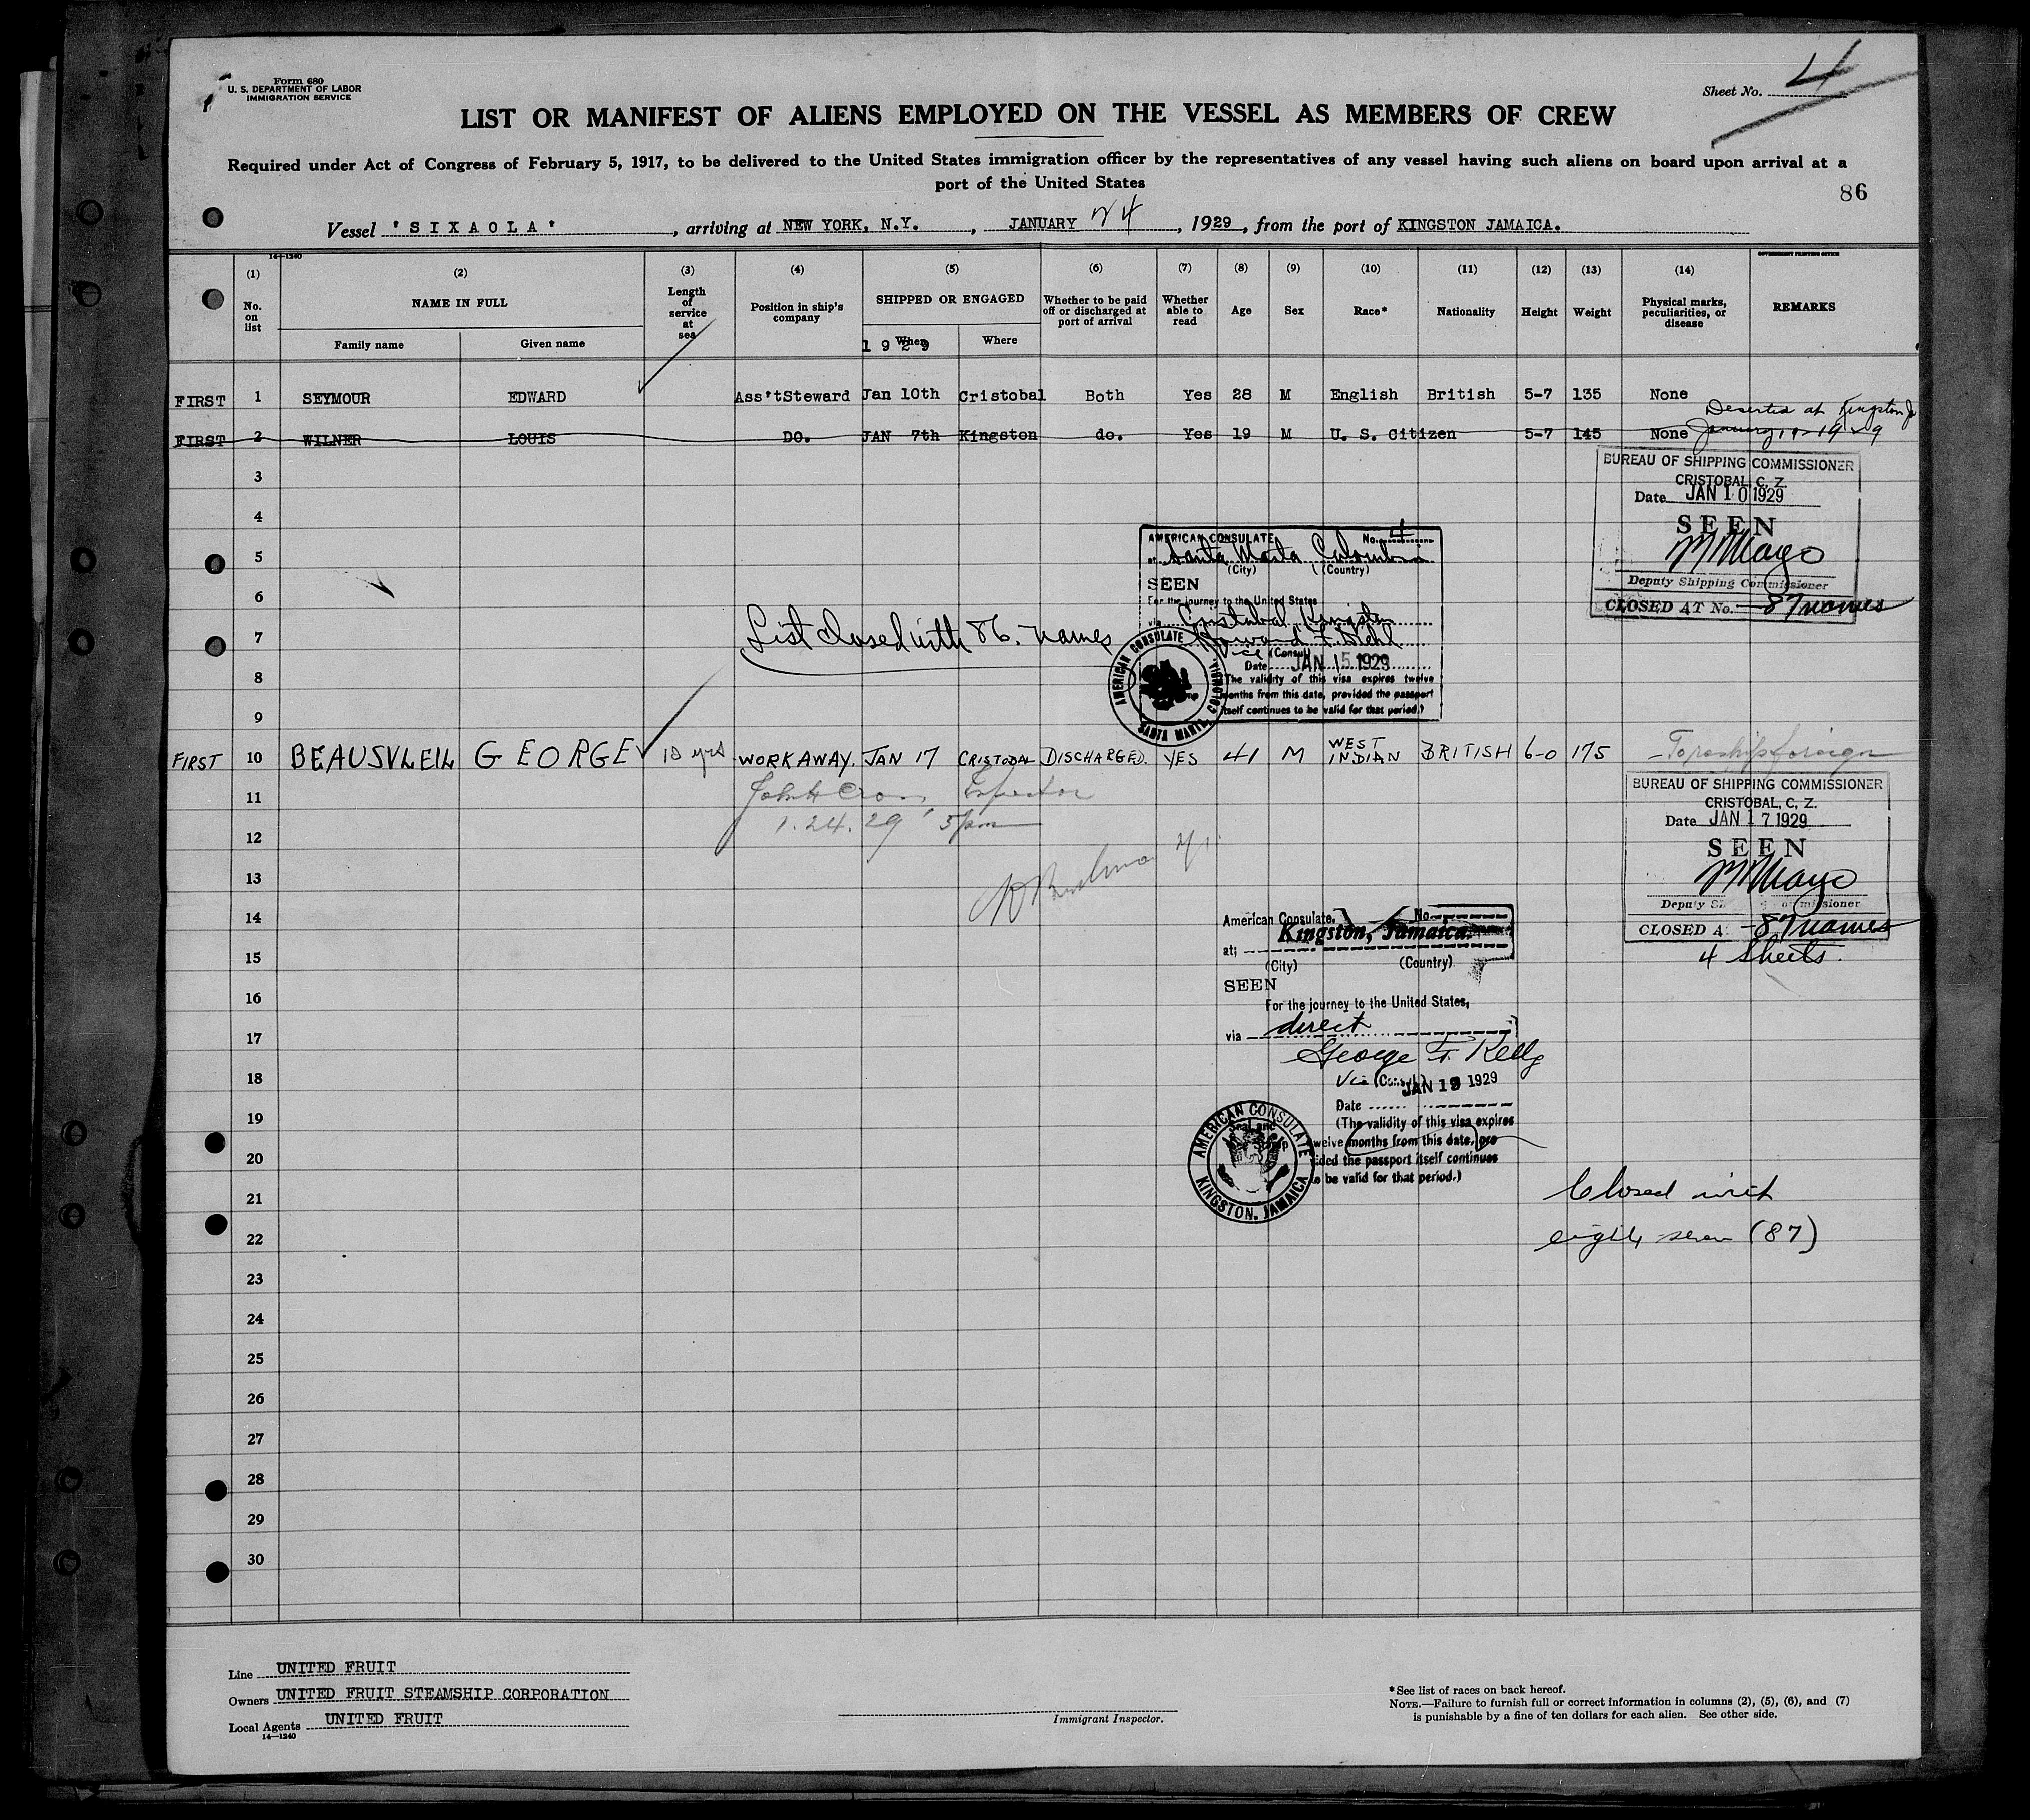 Form 680
U. S. DEPARTMENT OF LABOR
IMMIGRATION SERVICE
Sheet No. 4
LIST OR MANIFEST OF ALIENS EMPLOYED ON THE VESSEL AS MEMBERS OF CREW
Required under Act of Congress of February 5, 1917, to be delivered to the United States immigration officer by the representatives of any vessel having such aliens on board upon arrival at a
port of the United States
86
Vessel 'SIXAOLA', arriving at NEW YORK, N.Y., JANUARY 24, 1929, from the port of KINGSTON JAMAICA.
14-1240
GOVERNMENT PRINTING OFFICE
(1) (2) (3) (4) (5) (6) (7) (8) (9) (10) (11) (12) (13) (14)
No. on list NAME IN FULL Length of service at sea Position in ship's company SHIPPED OR ENGAGED Whether to be paid off or discharged at port of arrival Whether able to read Age Sex Race* Nationality Height Weight Physical marks, peculiarities, or disease REMARKS
Family name Given name When 1929 Where
FIRST 1 SEYMOUR EDWARD Ass'tSteward Jan 10th Cristobal Both Yes 28 M English British 5-7 135 None
Deserted at Kingston Ja
FIRST 2 WILNER LOUIS DO. JAN 7th Kingston do. Yes 19 M U. S. Citizen 5-7 145 None January 19 1929
3
BUREAU OF SHIPPING COMMISSIONER
CRISTOBAL, C. Z.
Date JAN 10 1929
SEEN
M Mayo
Deputy Shipping Commissioner
CLOSED AT No. 87 names
4
5
6
AMERICAN CONSULATE No. 4
at Santa Marta Colombia
(City) (Country)
SEEN
For the journey to the United States
via Cristobal Kingston
Howard F. Diehl
Vice (Consul)
Date JAN 15 1929
(The validity of this visa expires twelve
months from this date, provided the passport
itself continues to be valid for that period.)
AMERICAN CONSULATE SANTA MARTA, COLOMBIA
7 List closed with 86. names
8
9
FIRST 10 BEAUSVLEIL GEORGE 10 yrs WORKAWAY. JAN 17 CRISTOBAL DISCHARGED. YES 41 M WEST INDIAN BRITISH 6-0 175 To reship foreign
11 John H Inspector
12 1.24.29 5pm
13
BUREAU OF SHIPPING COMMISSIONER
CRISTOBAL, C. Z.
Date JAN 17 1929
SEEN
M Mayo
Deputy Commissioner
CLOSED A 87 names
4 Sheets.
14
15
16
17
18
American Consulate, No.
Kingston, Jamaica
at;
(City) (Country)
SEEN
For the journey to the United States,
via direct
George F. Kelly
Vice (Consul)
JAN 19 1929
Date
(The validity of this visa expires
twelve months from this date, pro
ided the passport itself continues
to be valid for that period.)
AMERICAN CONSULATE KINGSTON, JAMAICA
Seal and
19
20
21 Closed with
22 eighty seven (87)
23
24
25
26
27
28
29
30
Line UNITED FRUIT
Owners UNITED FRUIT STEAMSHIP CORPORATION
Local Agents UNITED FRUIT
14—1240
Immigrant Inspector.
*See list of races on back hereof.
NOTE.—Failure to furnish full or correct information in columns (2), (5), (6), and (7)
is punishable by a fine of ten dollars for each alien. See other side.